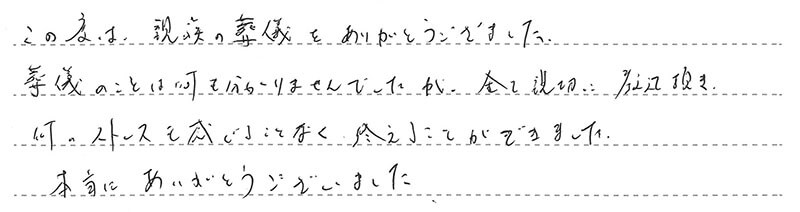 この度は、親族の葬儀をありがとうございました。
葬儀のことは何も分かりませんでしたが、全て親切に 対応頂き、
何のストレスも感じることなく 終えることができました。
本当に ありがとうございました